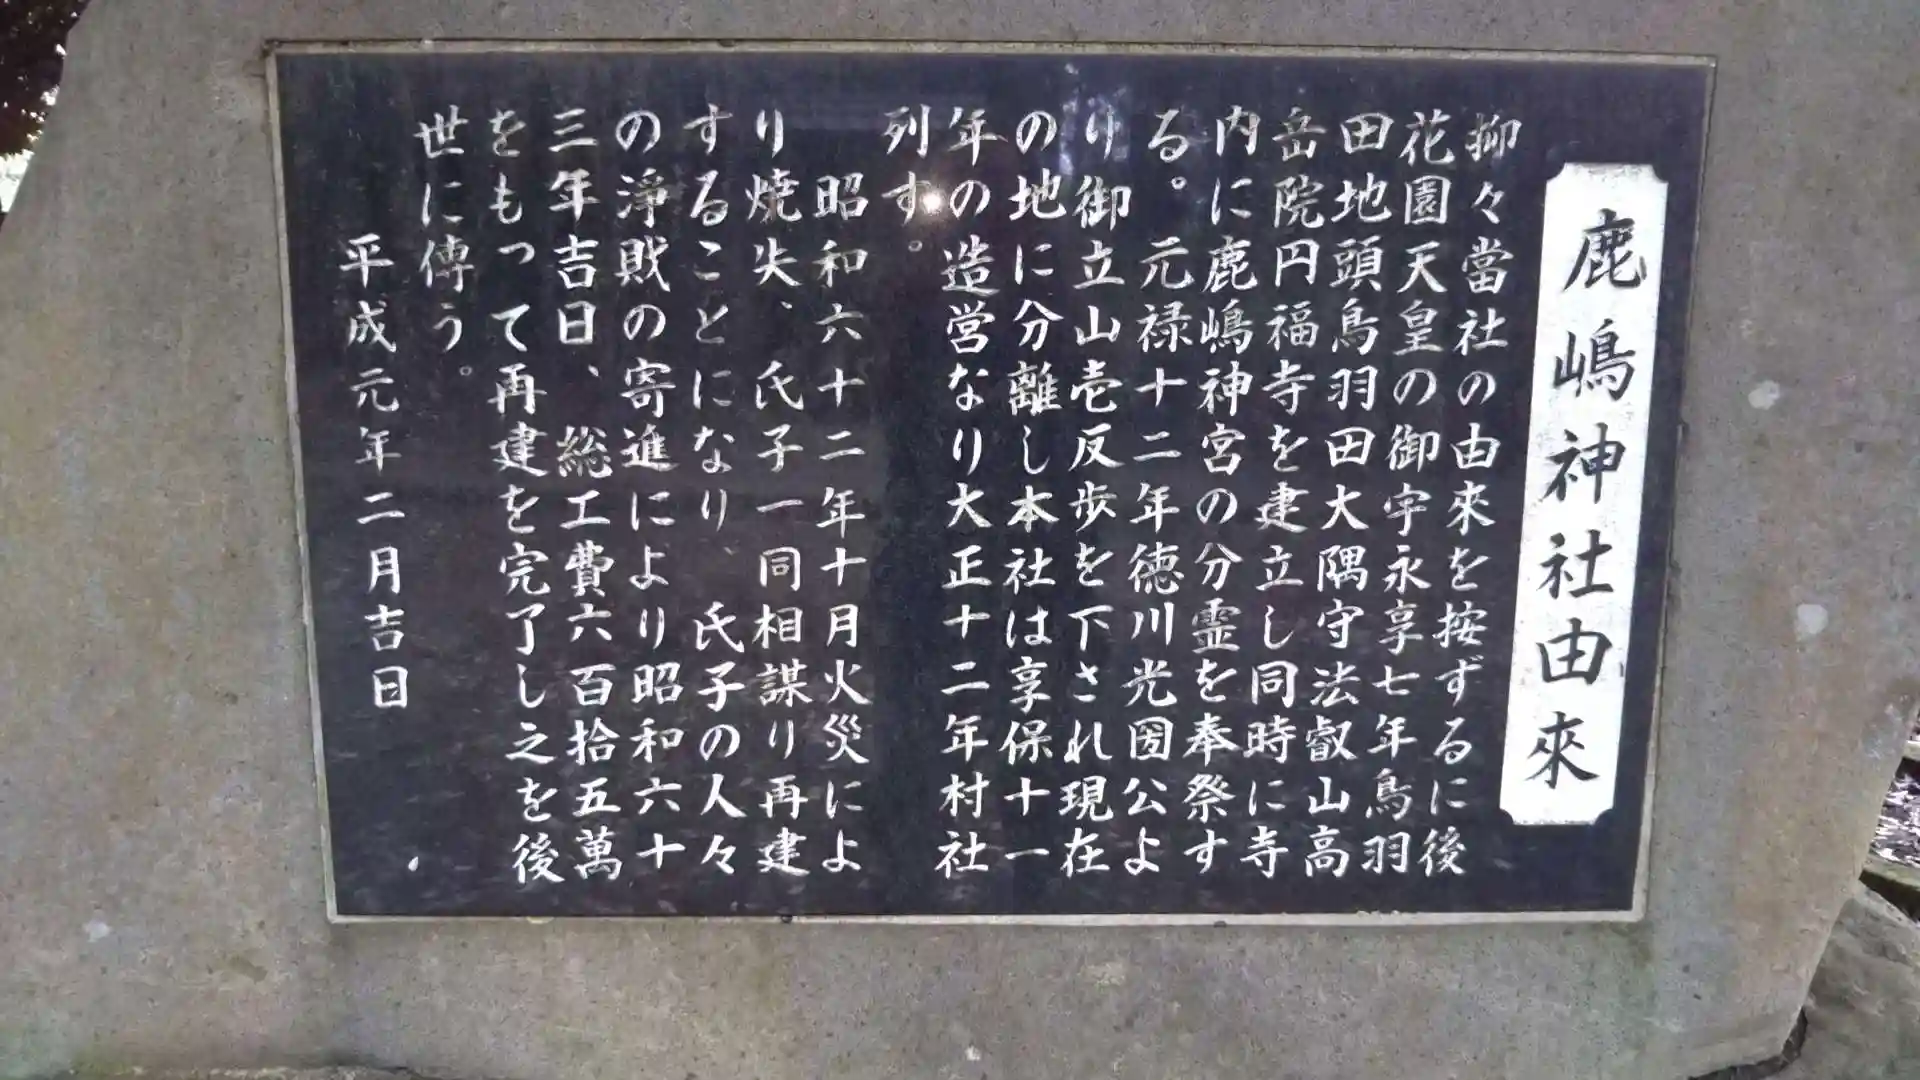 鹿嶋神社由來
抑々當社の由來を按ずるに後
花園天皇の御宇永享七年鳥羽
田地頭鳥羽田大隅守法叡山高
岳院円福寺を建立し同時に寺
内に鹿嶋神宮の分霊を奉祭す
る。元禄十二年徳川光圀公よ
り御立山壱反歩を下され現在
の地に分離し本社は享保十一
年の造営なり大正十二年村社
列す。
昭和六十二年十月火災によ
り焼失、氏子一同相謀り再建
することになり、氏子の人々
の淨財の寄進により昭和六十
三年吉日、総工費六百拾五萬
をもって再建を完了し之を後
世に傳う。
平成元年二月吉日